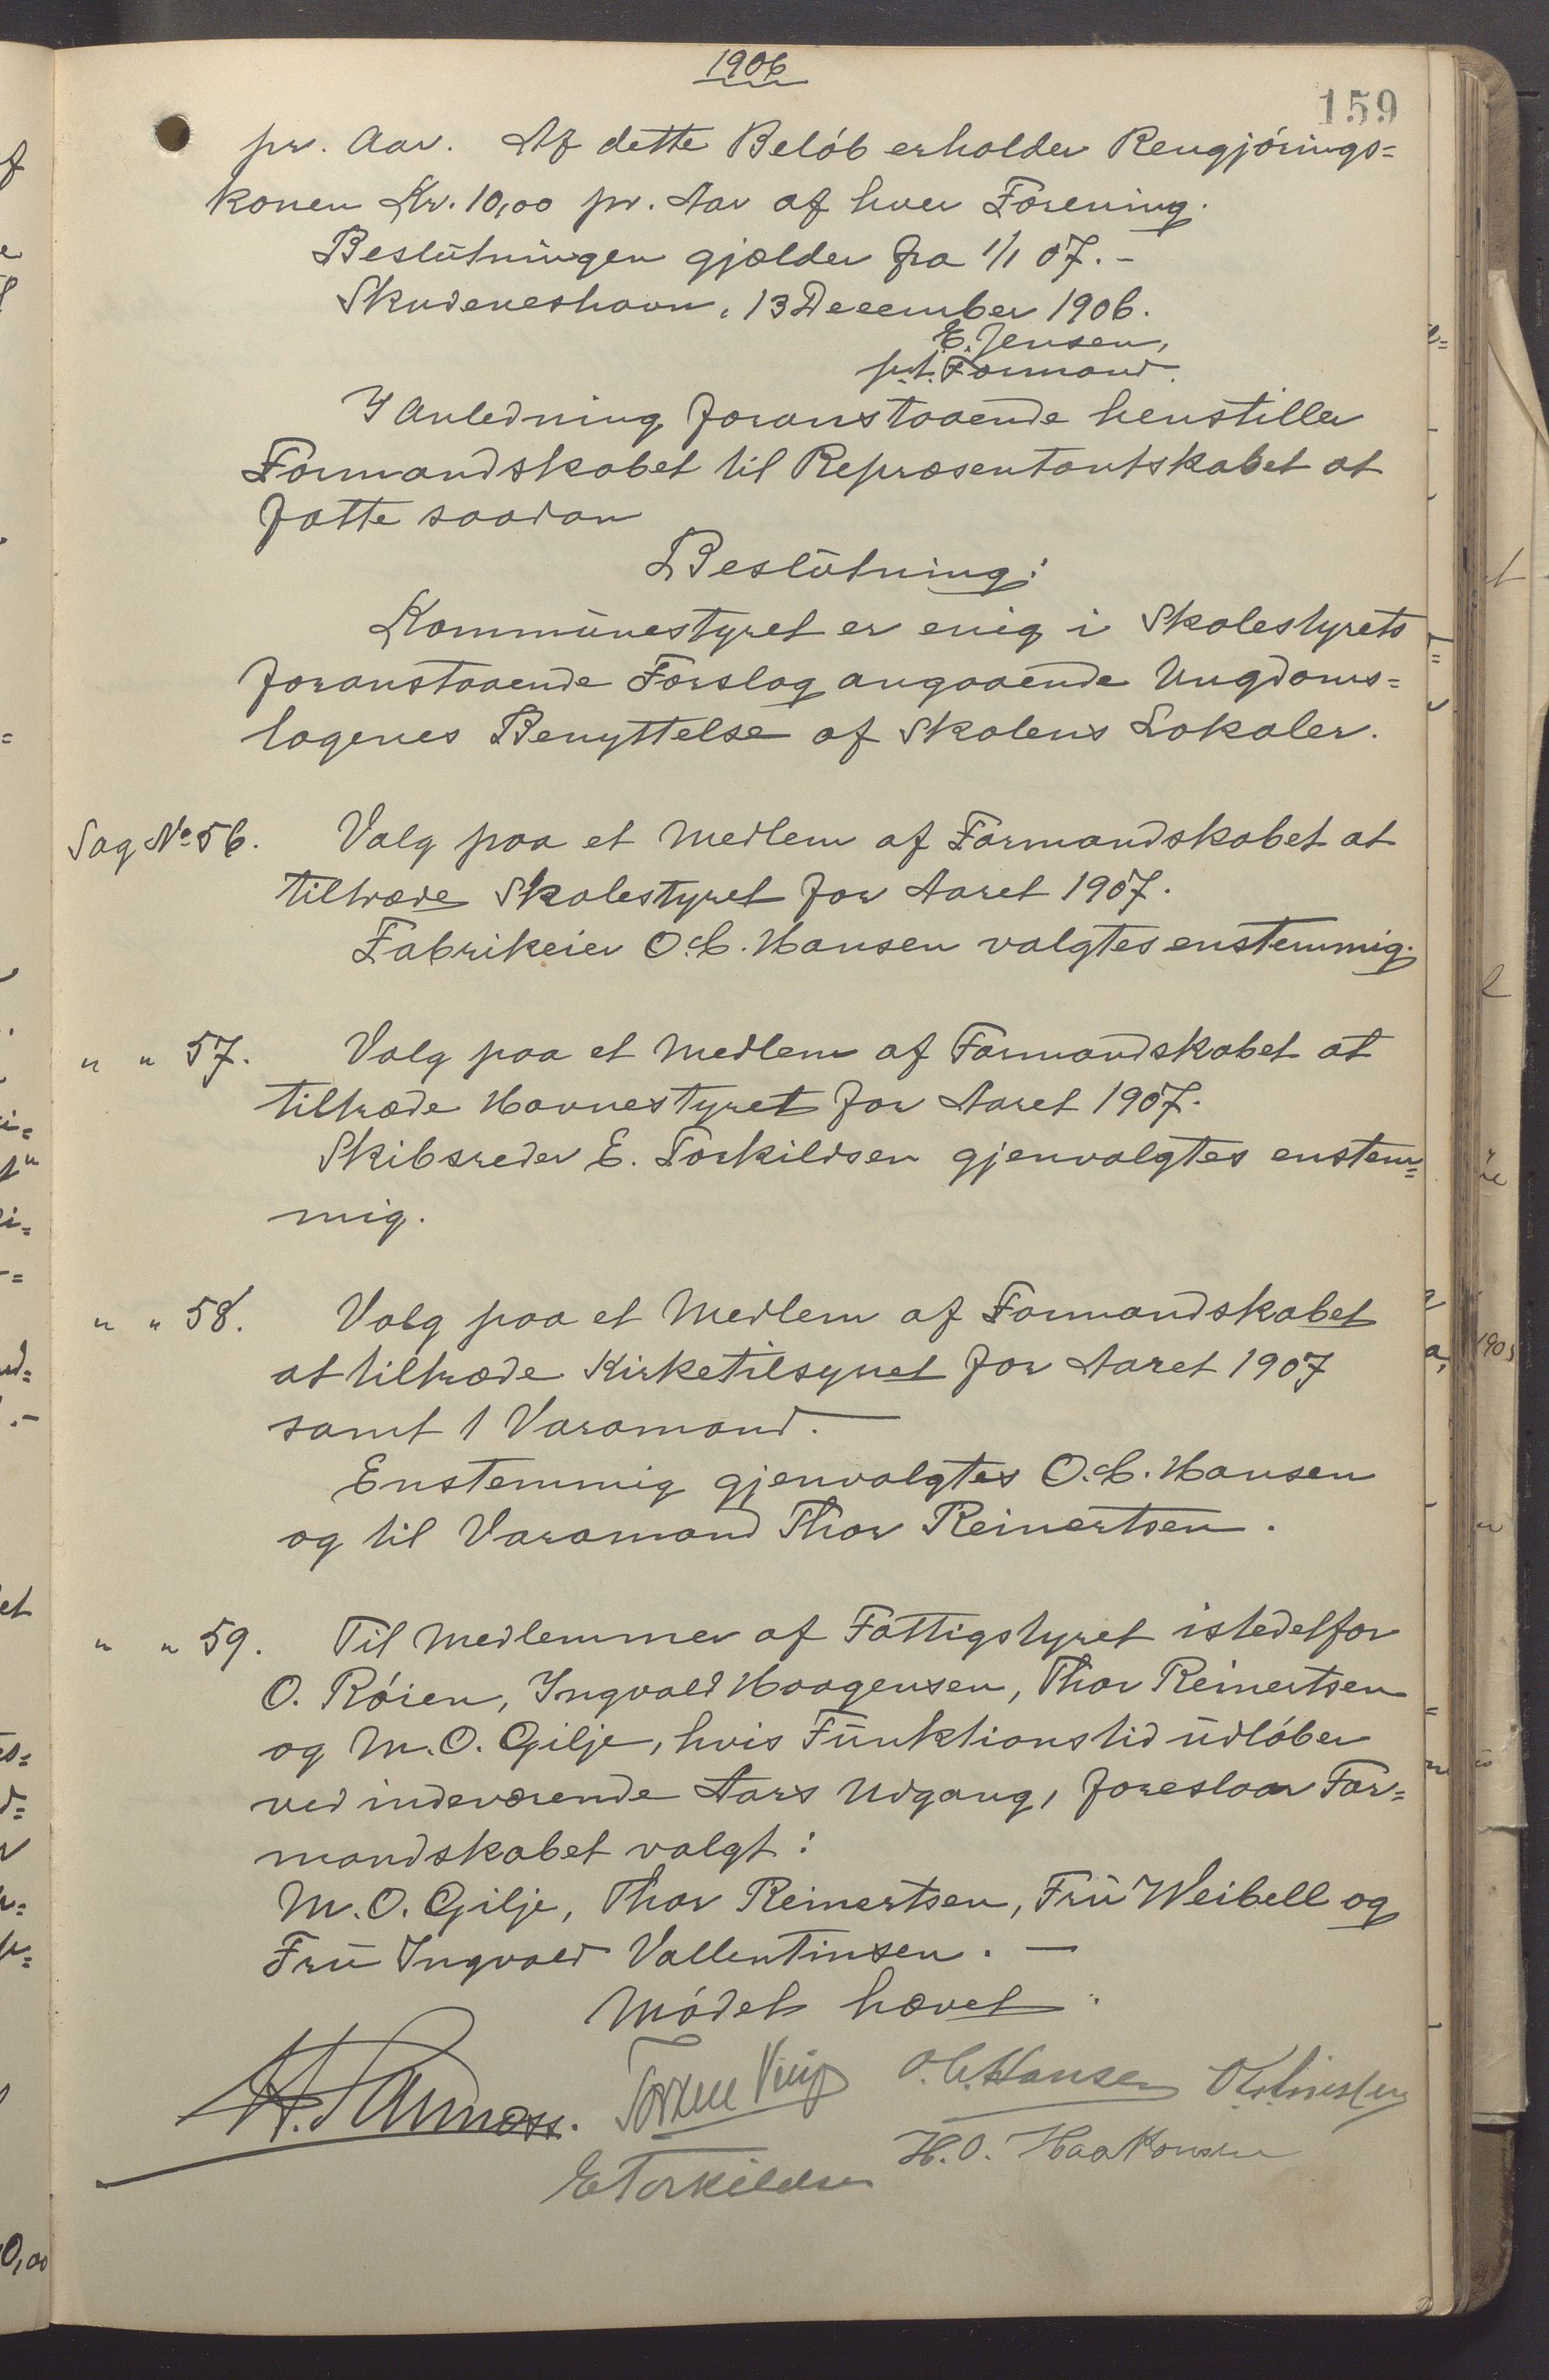 1906
159
pr. Aar. Af dette Beløb erholder Rengjørings=
konen Kr. 10,00 pr. Aar af hver Forening.
Beslutningen gjælder fra 1/1 07. -
Skudeneshavn, 13 December 1906.
E. Jensen,
p.t. Formand.
I Anledning foranstaaende henstiller
Formandskabet til Repræsentantskabet at
fatte saadan
Beslutning:
Kommunestyret er enig i Skolestyrets
foranstaaende Forslag angaaende Ungdoms=
lagenes Benyttelse af Skolens Lokaler.
Sag No 56. Valg paa et Medlem af Formandskabet at
tiltræde Skolestyret for Aaret 1907.
Fabrikeier O. C. Hansen valgtes enstemmig.
" " 57. Valg paa et Medlem af Formandskabet at
tiltræde Havnestyret for Aaret 1907.
Skibsreder E. Torkildsen gjenvalgtes enstem=
mig.
" " 58. Valg paa et Medlem af Formandskabet
at tiltræde Kirketilsynet for Aaret 1907
samt 1 Varamand. —
Enstemmig gjenvalgtes O. C. Hansen
og til Varamand Thor Reinertsen.
" " 59. Til Medlemmer af Fattigstyret istedetfor
O. Røien, Ingvald Haagensen, Thor Reinertsen
og M. O. Gilje, hvis Funktionstid udløber
ved indeværende Aars Udgang, foreslaar For=
mandskabet valgt:
M. O. Gilje, Thor Reinertsen, Fru Weibell og
Fru Ingvald Vallentinsen. —
Mødet hævet.
O. C. Hansen
E Torkildsen
H. O. Haakonsen